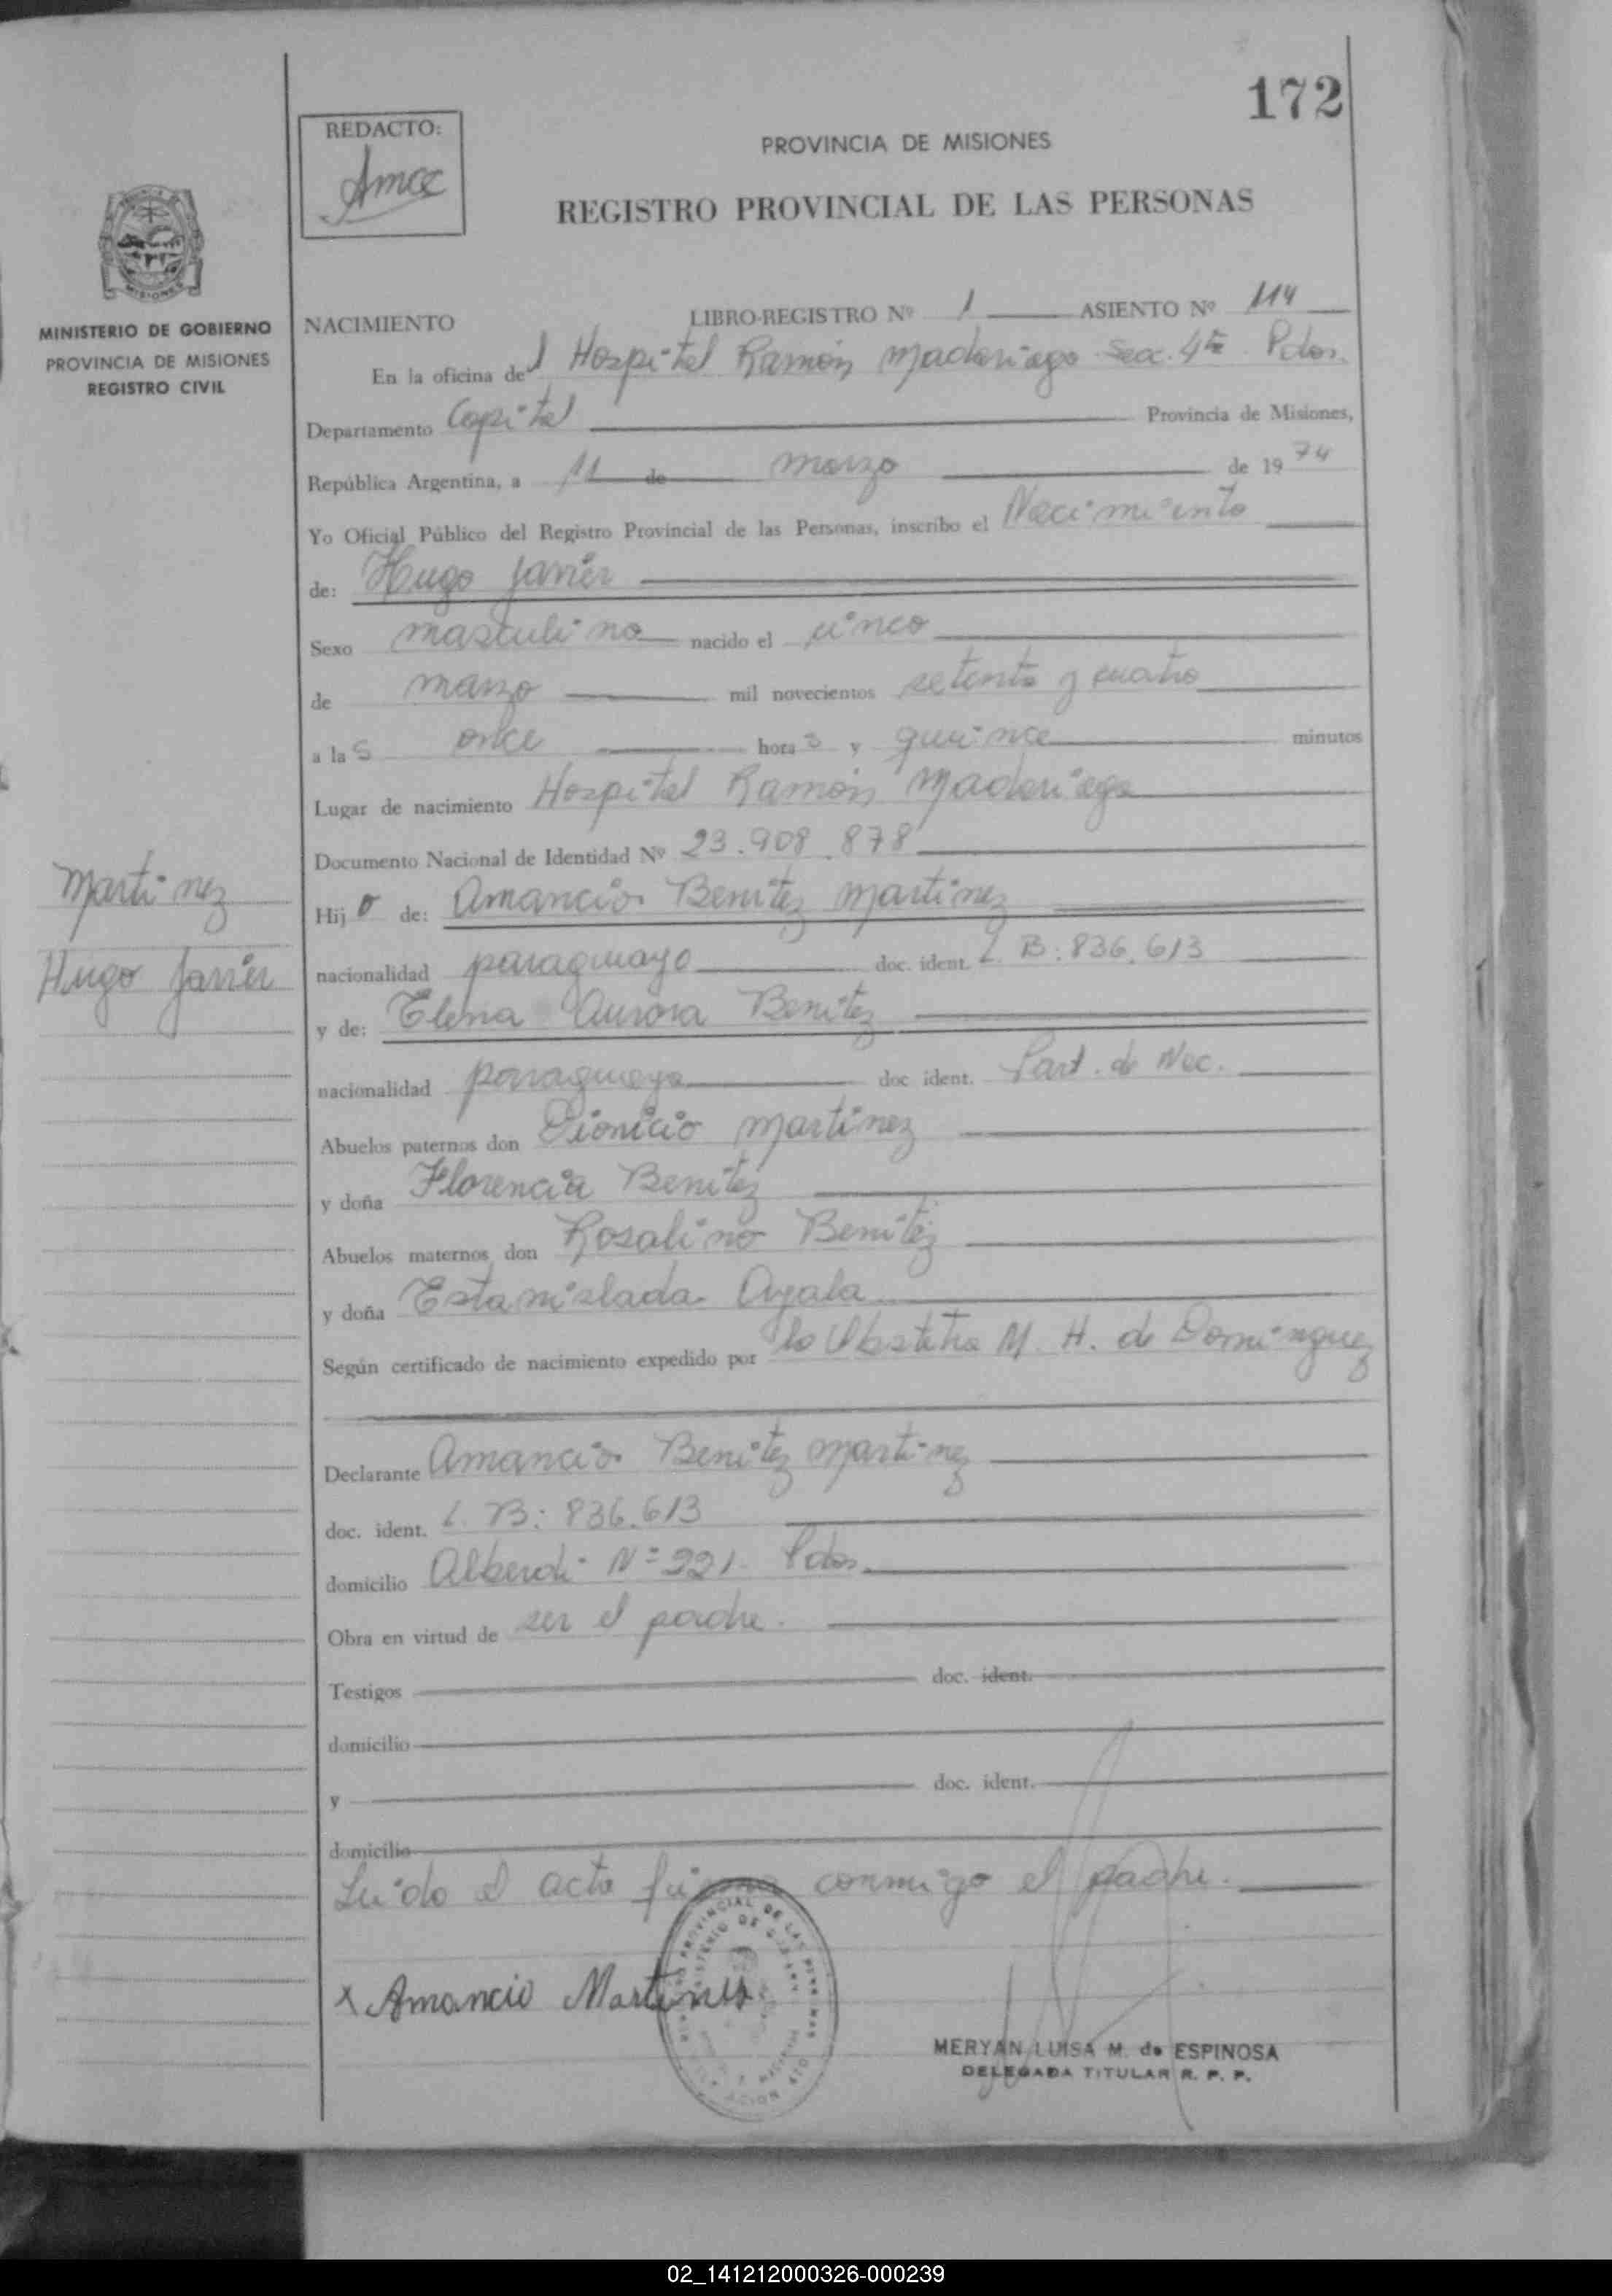 172
REDACTO:
PROVINCIA DE MISIONES
REGISTRO PROVINCIAL DE LAS PERSONAS
MISIONES
MINISTERIO DE GOBIERNO
PROVINCIA DE MISIONES
REGISTRO CIVIL
NACIMIENTO LIBRO-REGISTRO Nº 1 ASIENTO Nº 114
En la oficina del Hospital Ramón Madariaga Secc. 4ta Pdas.
Departamento Capital Provincia de Misiones,
República Argentina, a 11 de marzo de 1974
Yo Oficial Público del Registro Provincial de las Personas, inscribo el Nacimiento
de: Hugo Javier
Sexo masculino nacido el cinco
de marzo mil novecientos setenta y cuatro
a las once horas y quince minutos
Lugar de nacimiento Hospital Ramón Madariaga
Documento Nacional de Identidad Nº 23.908.878
Martinez
Hijo de: Amancio Benitez Martinez
Hugo Javier
nacionalidad paraguayo doc. ident. L. B: 836.613
y de: Elena Aurora Benitez
nacionalidad paraguaya doc ident. Part. de Nac.
Abuelos paternos don Dionicio Martinez
y doña Florencia Benitez
Abuelos maternos don Rosalino Benitez
y doña Estanislada Ayala
Según certificado de nacimiento expedido por la Obstetra M. H. de Dominguez
Declarante Amancio Benitez Martinez
doc. ident. L. B: 836.613
domicilio Alberdi Nº 221. Pdas.
Obra en virtud de ser el padre.
Testigos doc. ident.
domicilio
y doc. ident.
domicilio
Leido el acta firma conmigo el padre.
x Amancio Martines
MERYAN LUISA M. de ESPINOSA
DELEGADA TITULAR R. P. P.
02_141212000326-000239